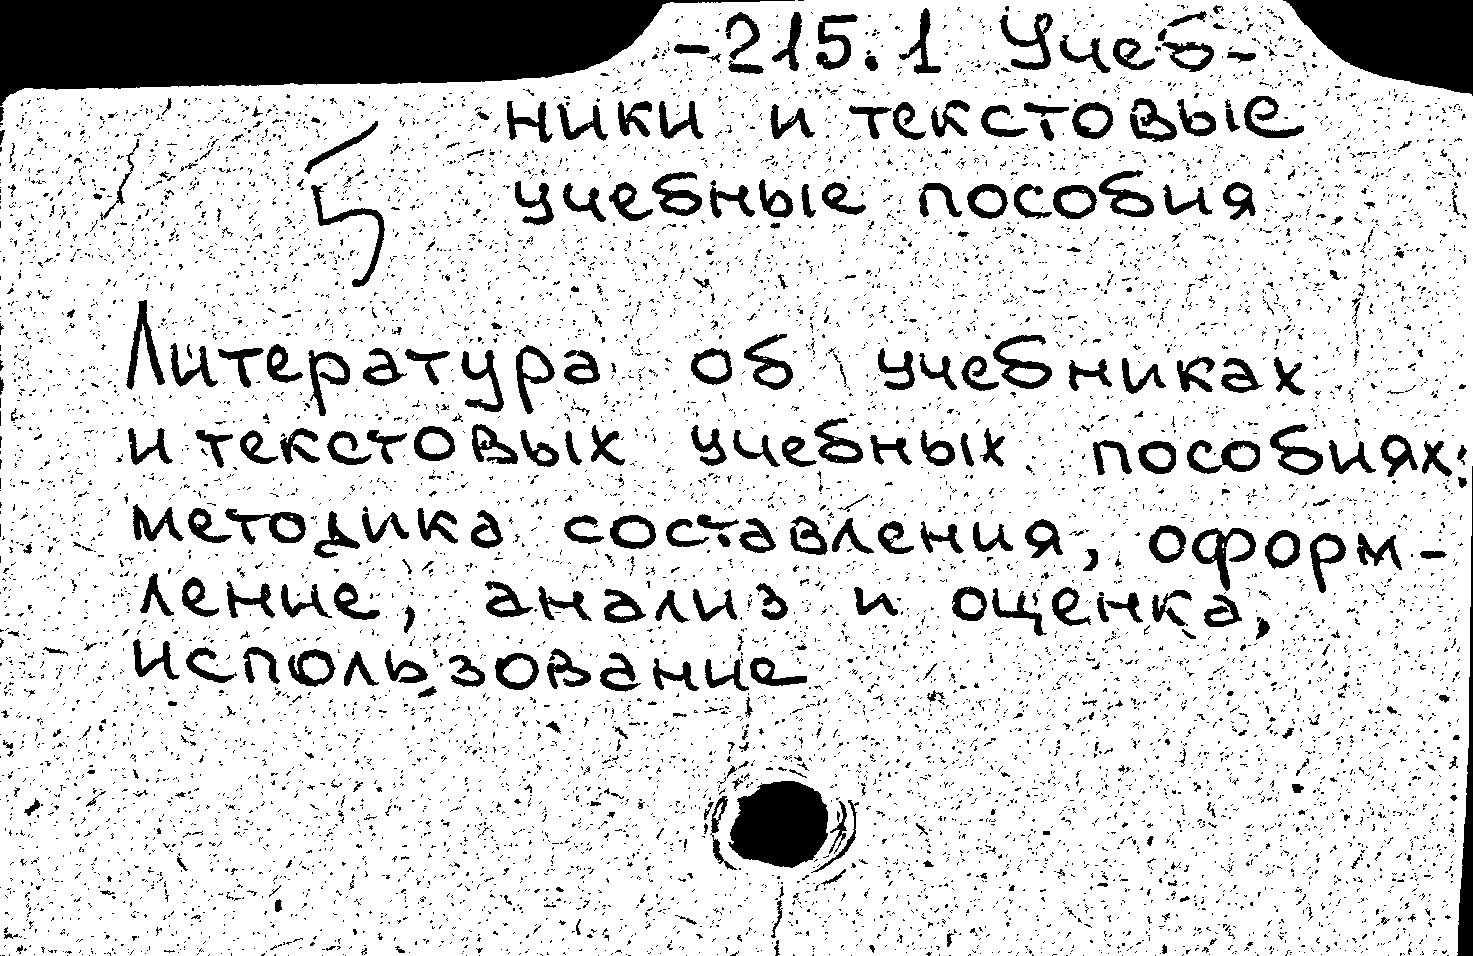 -215.1 Учеб-
ники и текстовые
5
учебные пособия
Литература об учебниках
и текстовых учебных пособиях:
методика составления, оформ-
ление, анализ и оценка,
использование